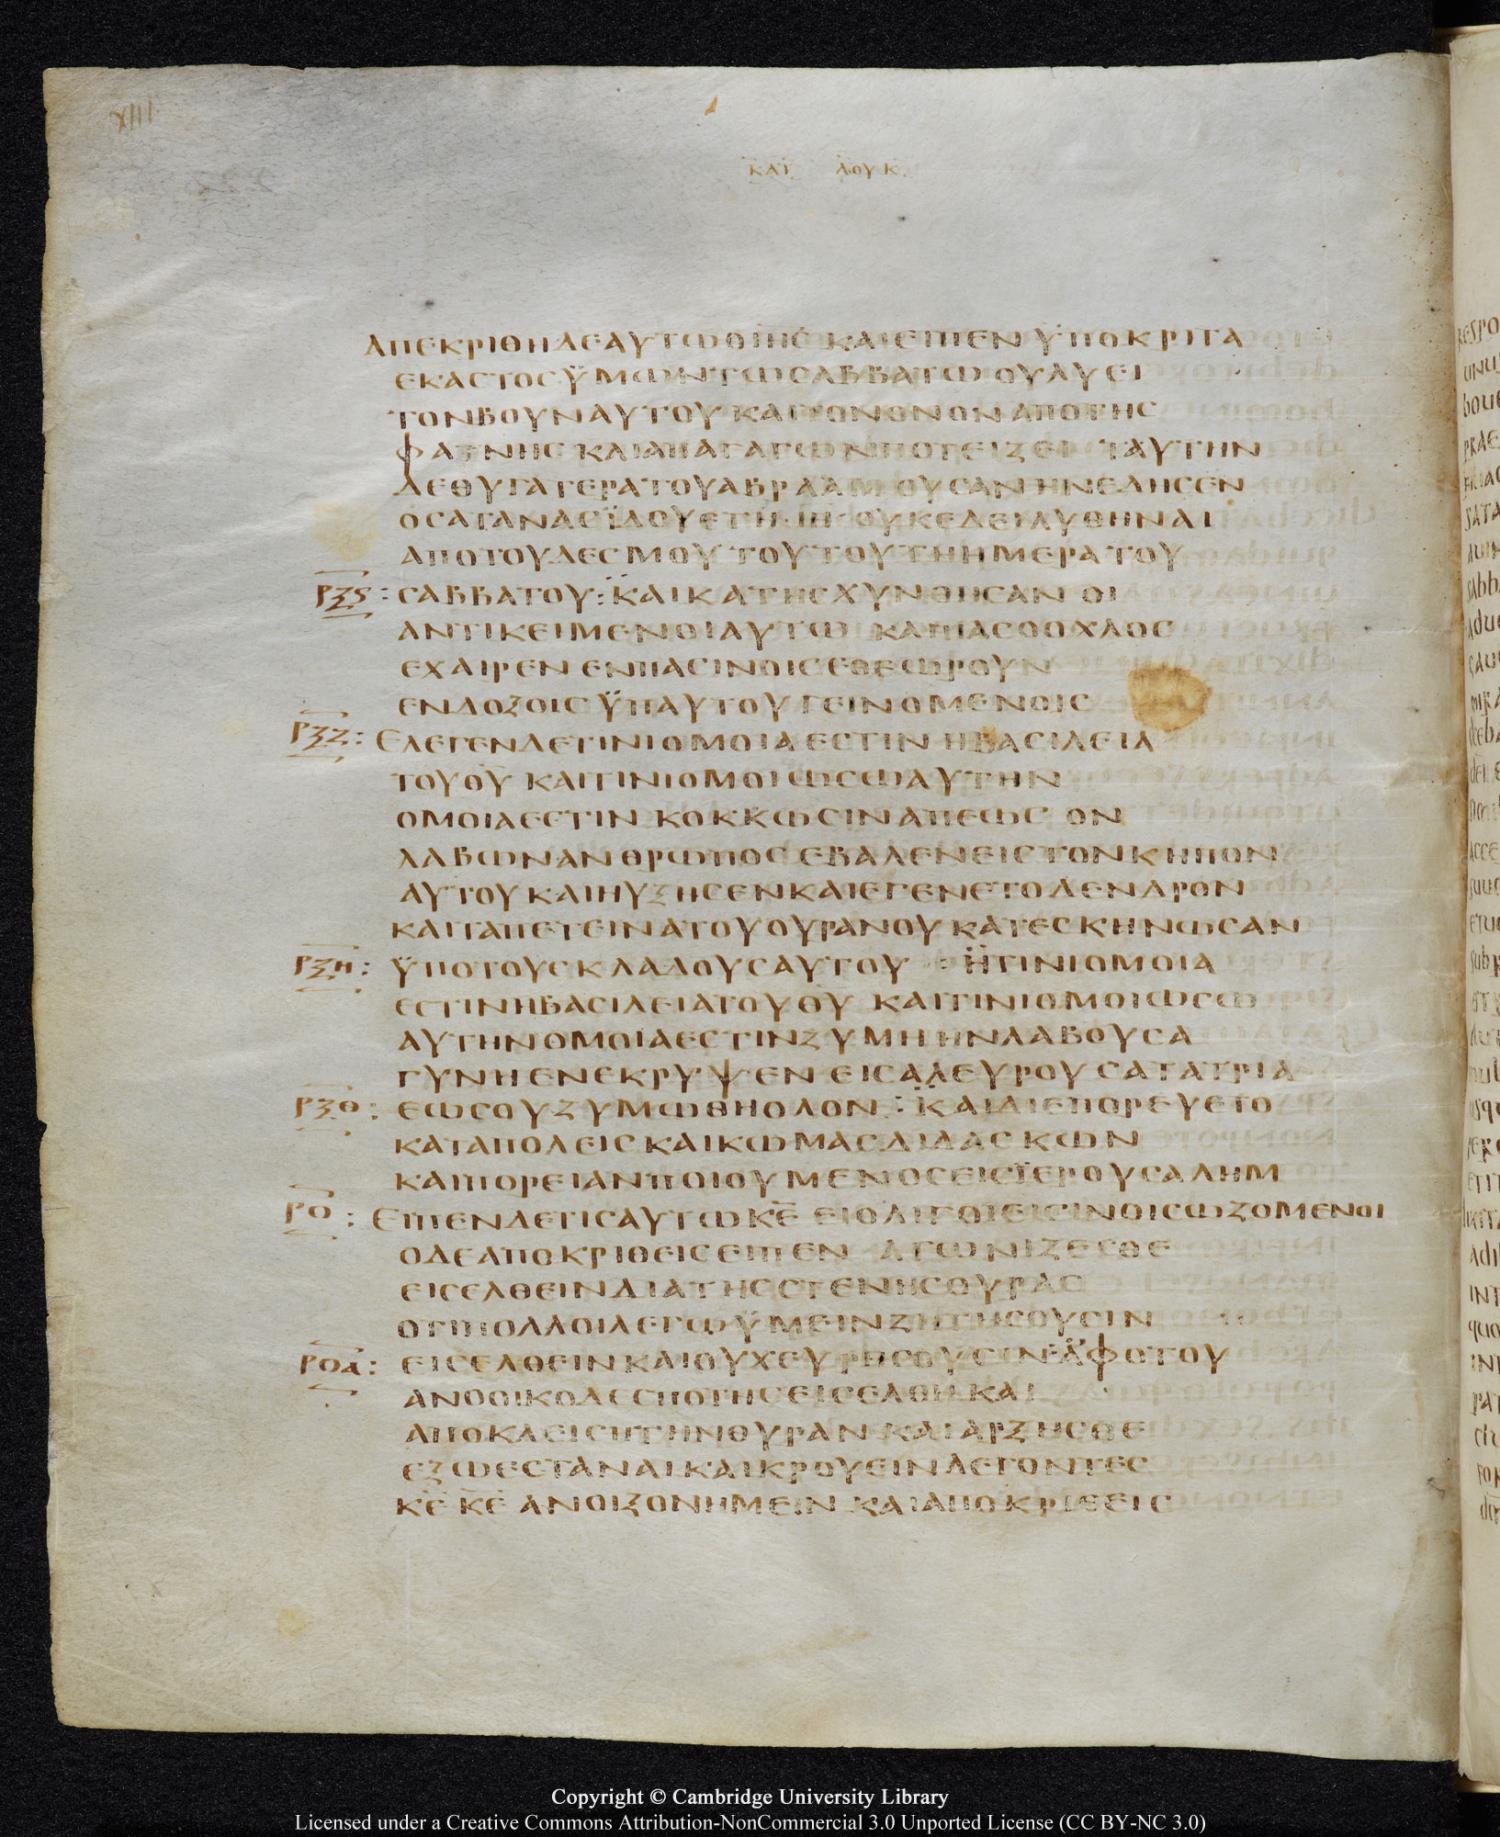 XIII
ΚΑΤ ΛΟΥΚ
ΑΠΕΚΡΙΘΗΔΕΑΥΤΩΟΙΗϹ ΚΑΙΕΙΠΕΝ ΫΠΟΚΡΙΤΑ
ΕΚΑϹΤΟϹΫΜΩΝΤΩϹΑΒΒΑΤΩ ΟΥΛΥΕΙ
ΤΟΝΒΟΥΝΑΥΤΟΥ ΚΑΙΤΟΝΟΝΟΝ ΑΠΟΤΗϹ
ΦΑΤΝΗϹ ΚΑΙΑΠΑΓΑΓΩΝΠΟΤΕΙΖΕΙ ΤΑΥΤΗΝ
ΔΕΘΥΓΑΤΕΡΑΤΟΥΑΒΡΑΑΜ ΟΥϹΑΝ ΗΝΕΔΗϹΕΝ
ΟϹΑΤΑΝΑϹΪΔΟΥΕΤΗ ΙΗ ΟΥΚΕΔΕΙΛΥΘΗΝΑΙ
ΑΠΟΤΟΥΔΕϹΜΟΥ ΤΟΥΤΟΥ ΤΗΗΜΕΡΑ ΤΟΥ
ΡΞϚ : ϹΑΒΒΑΤΟΥ : ΚΑΙΚΑΤΗϹΧΥΝΘΗϹΑΝ ΟΙ
ΑΝΤΙΚΕΙΜΕΝΟΙΑΥΤΩ ΚΑΙΠΑϹΟΟΧΛΟϹ
ΕΧΑΙΡΕΝ ΕΝΠΑϹΙΝΟΙϹΕΘΕΩΡΟΥΝ
ΕΝΔΟΞΟΙϹ ΫΠΑΥΤΟΥ ΓΕΙΝΟΜΕΝΟΙϹ
ΡΞΖ : ΕΛΕΓΕΝΔΕΤΙΝΙΟΜΟΙΑ ΕϹΤΙΝ ΗΒΑϹΙΛΕΙΑ
ΤΟΥΘΥ ΚΑΙΤΙΝΙΟΜΟΙΩϹΩΑΥΤΗΝ
ΟΜΟΙΑΕϹΤΙΝ ΚΟΚΚΩϹΙΝΑΠΕΩϹ ΟΝ
ΛΑΒΩΝΑΝΘΡΩΠΟϹ ΕΒΑΛΕΝΕΙϹΤΟΝΚΗΠΟΝ
ΑΥΤΟΥ ΚΑΙΗΥΞΗϹΕΝΚΑΙΕΓΕΝΕΤΟΔΕΝΔΡΟΝ
ΚΑΙΤΑΠΕΤΕΙΝΑΤΟΥ ΟΥΡΑΝΟΥ ΚΑΤΕϹΚΗΝΩϹΑΝ
ΡΞΗ : ΫΠΟΤΟΥϹΚΛΑΔΟΥϹΑΥΤΟΥ : ΗΤΙΝΙΟΜΟΙΑ
ΕϹΤΙΝΗΒΑϹΙΛΕΙΑΤΟΥΘΥ ΚΑΙΤΙΝΙΟΜΟΙΩϹΩ
ΑΥΤΗΝΟΜΟΙΑΕϹΤΙΝΖΥΜΗ ΗΝΛΑΒΟΥϹΑ
ΓΥΝΗ ΕΝΕΚΡΥΨΕΝ ΕΙϹΑΛΕΥΡΟΥ ϹΑΤΑΤΡΙΑ
ΡΞΘ : ΕΩϹΟΥΖΥΜΩΘΗΟΛΟΝ : ΚΑΙΔΙΕΠΟΡΕΥΕΤΟ
ΚΑΤΑΠΟΛΕΙϹ ΚΑΙΚΩΜΑϹ ΔΙΔΑϹΚΩΝ
ΚΑΙΠΟΡΕΙΑΝΠΟΙΟΥΜΕΝΟϹΕΙϹΪΕΡΟΥϹΑΛΗΜ
ΡΟ : ΕΙΠΕΝΔΕΤΙϹΑΥΤΩΚΕ ΕΙΟΛΙΓΟΙΕΙϹΙΝΟΙϹΩΖΟΜΕΝΟΙ
ΟΔΕΑΠΟΚΡΙΘΕΙϹΕΙΠΕΝ ΑΓΩΝΙΖΕϹΘΕ
ΕΙϹΕΛΘΕΙΝΔΙΑΤΗϹϹΤΕΝΗϹΘΥΡΑϹ
ΟΤΙΠΟΛΛΟΙΛΕΓΩΫΜΕΙΝΖΗΤΗϹΟΥϹΙΝ
ΡΟΑ : ΕΙϹΕΛΘΕΙΝΚΑΙΟΥΧΕΥΡΗϹΟΥϹΙΝ : ΑΦΟΤΟΥ
ΑΝΟΟΙΚΟΔΕϹΠΟΤΗϹΕΙϹΕΛΘΗ ΚΑΙ
ΑΠΟΚΛΕΙϹΗΤΗΝΘΥΡΑΝ ΚΑΙΑΡΞΗϹΘΕ
ΕΞΩΕϹΤΑΝΑΙΚΑΙΚΡΟΥΕΙΝ ΛΕΓΟΝΤΕϹ
ΚΕ ΚΕ ΑΝΟΙΞΟΝΗΜΕΙΝ ΚΑΙΑΠΟΚΡΙΘΕΙϹ
Copyright © Cambridge University Library
Licensed under a Creative Commons Attribution-NonCommercial 3.0 Unported License (CC BY-NC 3.0)